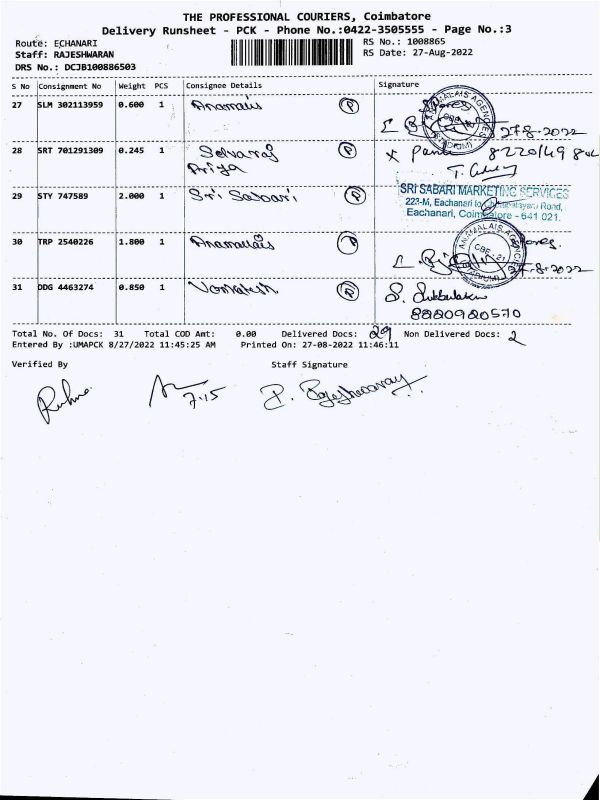 THE PROFESSIONAL COURIERS, Coimbatore
Delivery Runsheet - PCK - Phone No.:0422-3505555 - Page No.:3
Route: ECHANARI
RS No.: 1008865
Staff: RAJESHWARAN
RS Date: 27-Aug-2022
DRS No.: DCJB100886503
S No Consignment No Weight PCS Consignee Details Signature
27 SLM 302113959 0.600 1 Anamalais P
27-8-2022
28 SRT 701291309 0.245 1 Selvaraj P
Priya
29 STY 747589 2.000 1 Sri Sabari P
SRI SABARI MARKETING SERVICES
223-M, Eachanari to Road,
Eachanari, Coimbatore - 641 021.
30 TRP 2540226 1.800 1 Anamallais P
ANAMALAIS AGENCIES
27-8-2022
31 DDG 4463274 0.850 1 Venkatesh P
8220920570
Total No. Of Docs: 31 Total COD Amt: 0.00 Delivered Docs: 29 Non Delivered Docs: 2
Entered By :UMAPCK 8/27/2022 11:45:25 AM Printed On: 27-08-2022 11:46:11
Verified By Staff Signature
7.15 P. Rajeshwaran